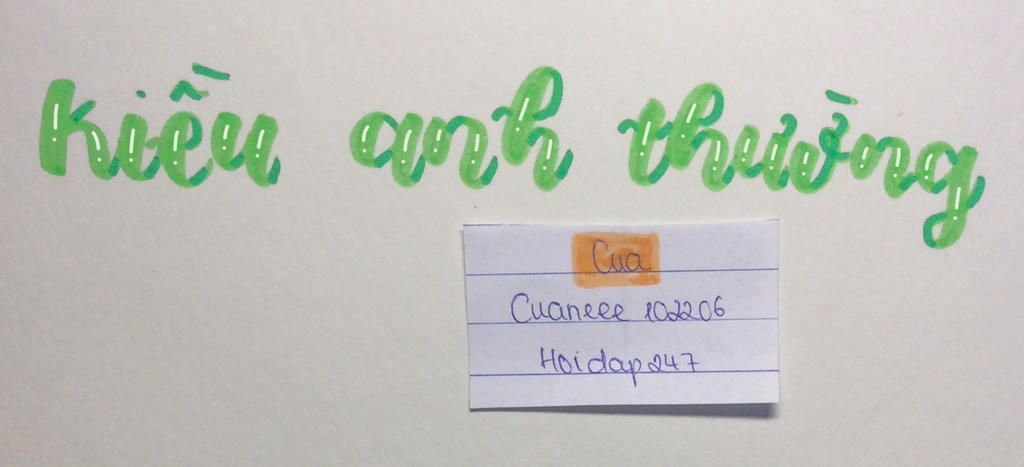 Kiều anh thường
Cua
Cuaneee 102206
Hoidap247